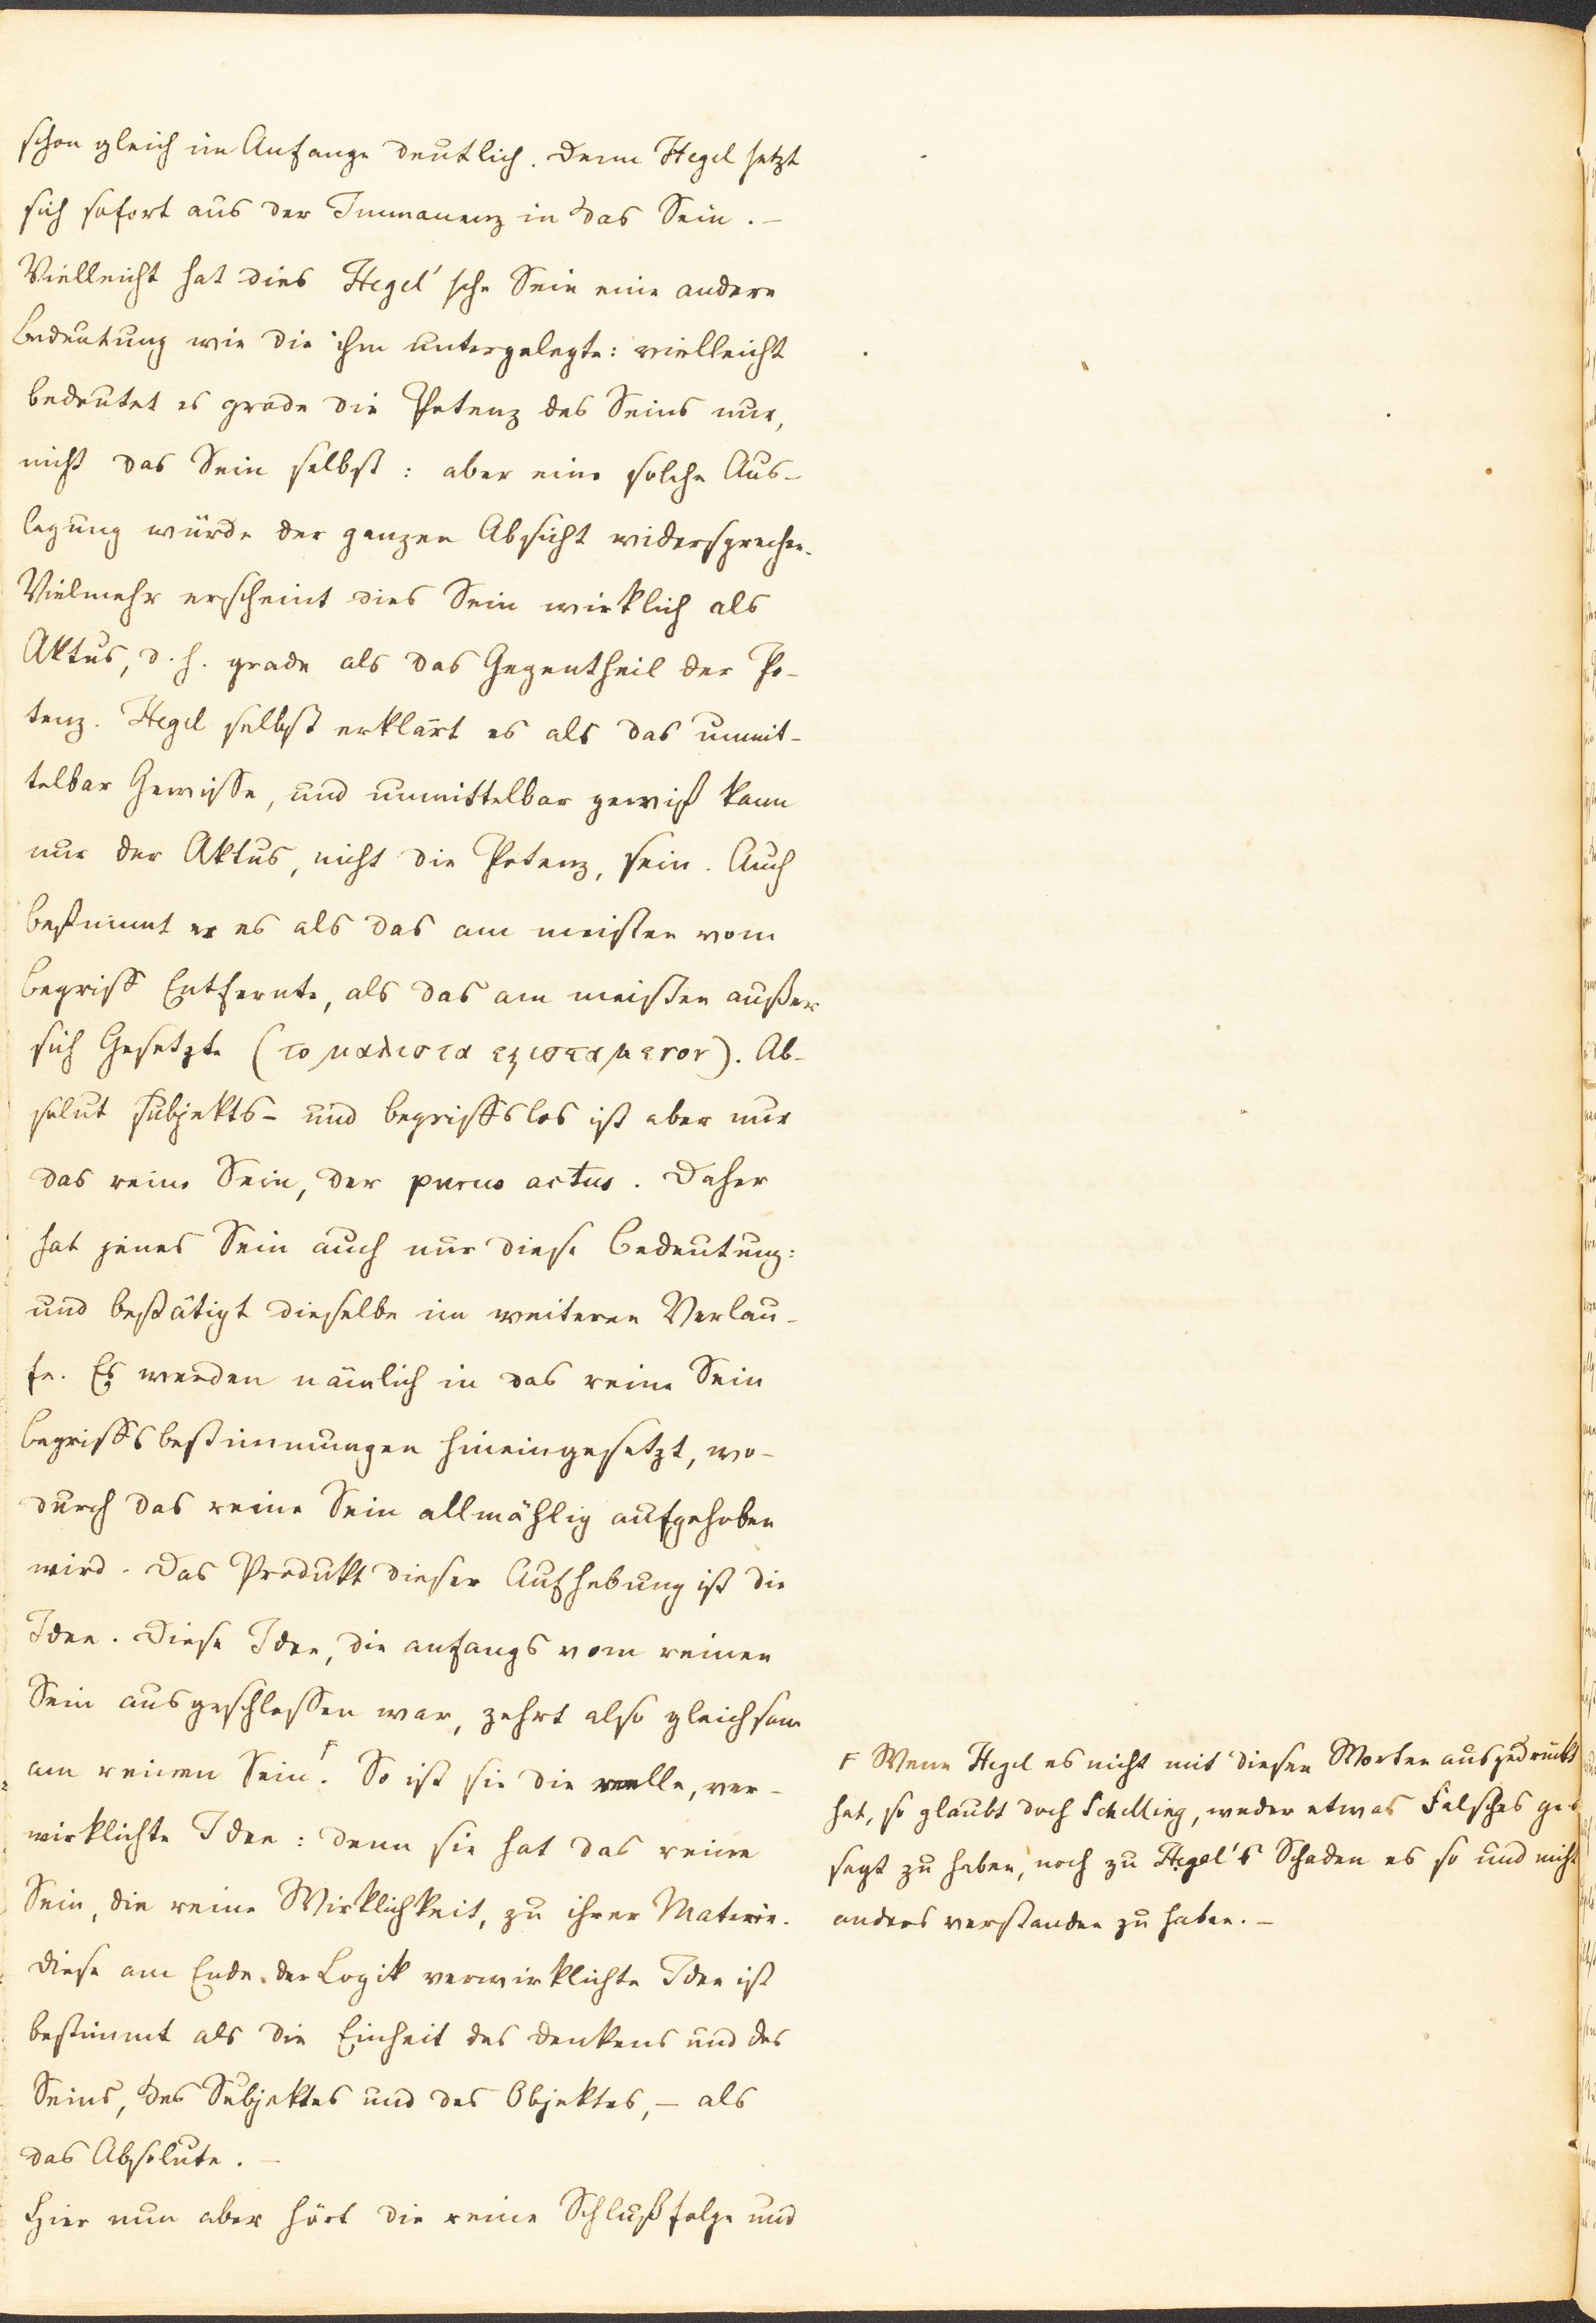 schon gleich im Anfange deutlich. Denn Hegel setzt
sich sofort aus der Immanenz in das Sein. –
Vielleicht hat dies Hegel'sche Sein eine andere
Bedeutung wie die ihm untergelegte: vielleicht
bedeutet es grade die Potenz des Seins nur,
nicht das Sein selbst: aber eine solche Aus-
legung würde der ganzen Absicht widersprechen.
Vielmehr erscheint dies Sein wirklich als
Aktus, d. h. grade als das Gegentheil der Po-
tenz. Hegel selbst erklärt es als das unmit-
telbar Gewisse, und unmittelbar gewiß kann
nur der Aktus, nicht die Potenz, sein. Auch
bestimmt er es als das am meisten vom
Begriff Entfernte, als das am meisten außer
sich Gesetzte (το μαλιστα εξισταμενον). Ab-
solut subjekts- und begriffslos ist aber nur
das reine Sein, der purus actus. Daher
hat jenes Sein auch nur diese Bedeutung:
und bestätigt dieselbe im weiteren Verlau-
fe. Es werden nämlich in das reine Sein
Begriffsbestimmungen hineingesetzt, wo-
durch das reine Sein allmählig aufgehoben
wird. Das Produkt dieser Aufhebung ist die
Idee. Diese Idee, die anfangs vom reinen
Sein ausgeschlossen war, zehrt also gleichsam
am reinen Sein. F So ist sie die reelle, ver-
wirklichte Idee: denn sie hat das reine
Sein, die reine Wirklichkeit, zu ihrer Materie.
Diese am Ende der Logik verwirklichte Idee ist
bestimmt als die Einheit des Denkens und des
Seins, des Subjektes und des Objektes, – als
das Absolute. –
Hier nun aber hört die reine Schlußfolge und
F Wenn Hegel es nicht mit diesen Worten ausgedrückt
hat, so glaubt doch Schelling, weder etwas Falsches ge-
sagt zu haben, noch zu Hegel's Schaden es so und nicht
anders verstanden zu haben. –